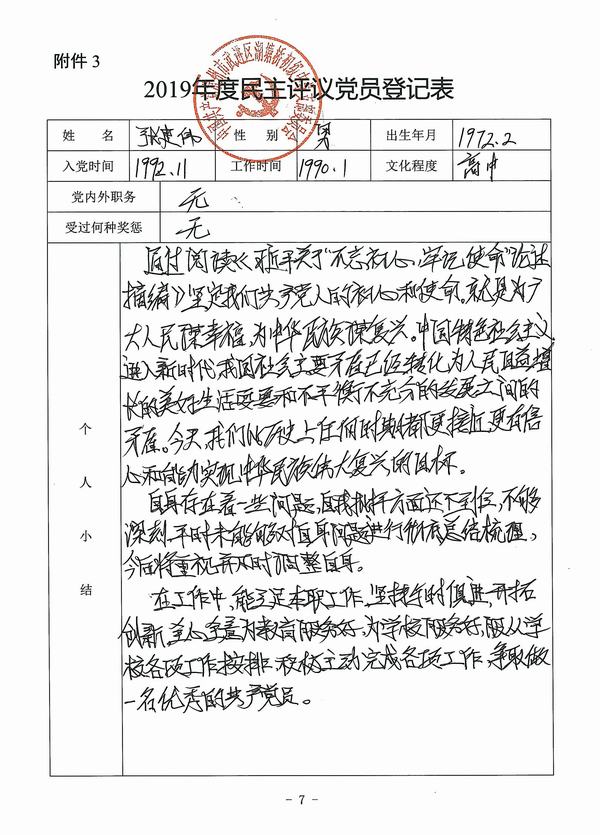 附件 3
2019年度民主评议党员登记表
姓 名 张建伟 性 别 男 出生年月 1972.2
入党时间 1992.11 工作时间 1990.1 文化程度 高中
党内外职务 无
受过何种奖惩 无
个人小结
通过阅读《习近平关于"不忘初心、牢记使命"论述
摘编》坚定我们共产党人的初心和使命。就是为广
大人民谋幸福,为中华民族谋复兴。中国特色社会主义
进入新时代,我国社会主要矛盾已经转化为人民日益增
长的美好生活要和不平衡不充分的发展之间的
矛盾。今天,我们比历史上任何时期都更接近、更有信
心和能力实现中华民族伟大复兴的目标。
自身存在着一些问题,自我批评方面还不到位,不够
深刻,平时未能够对自身问题进行彻底总结梳理,
今后将重视并及时调整自身。
在工作中,能立足本职工作,坚持与时俱进,开拓
创新,全心全意为教育服务好,为学校服务好,服从学
校各项工作按排,积极主动完成各项工作,争取做
一名优秀的共产党员。
- 7 -